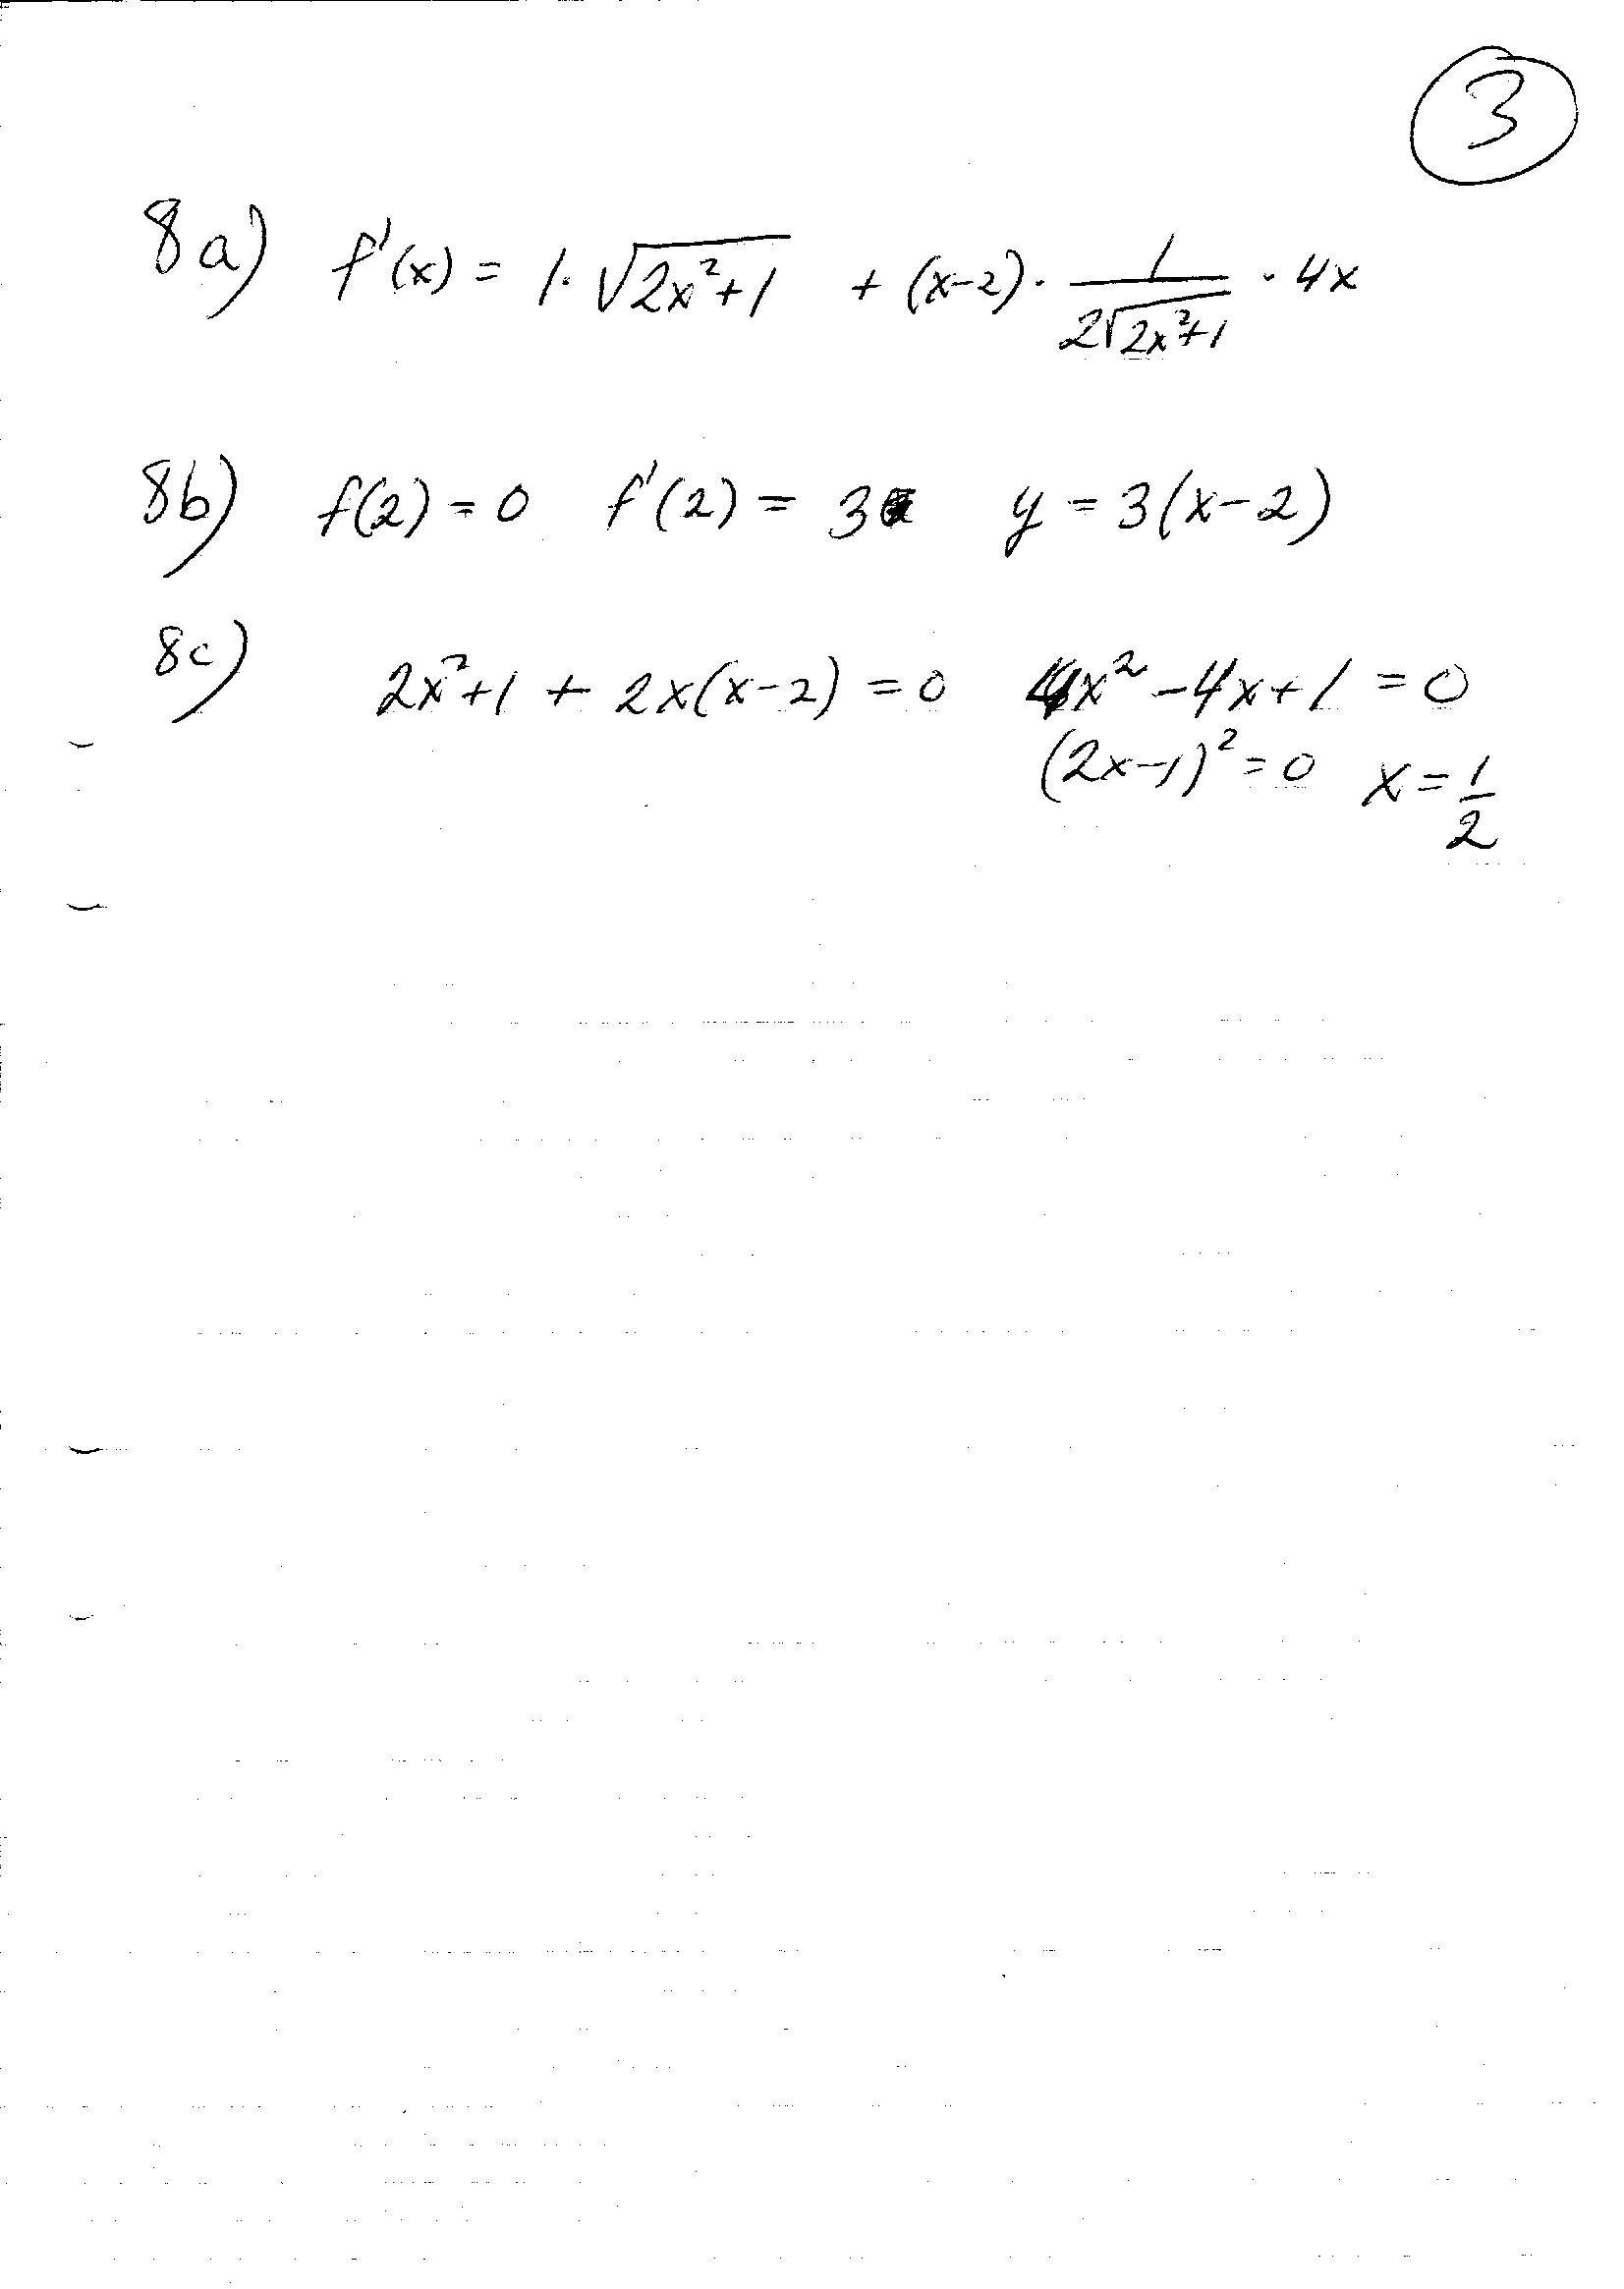 3
8a) f'(x) = 1·√(2x²+1) + (x-2)· 1/(2√(2x²+1)) · 4x
8b) f(2) = 0 f'(2) = 3 y = 3(x-2)
8c) 2x²+1 + 2x(x-2) = 0 4x² - 4x + 1 = 0
(2x-1)² = 0 x = 1/2